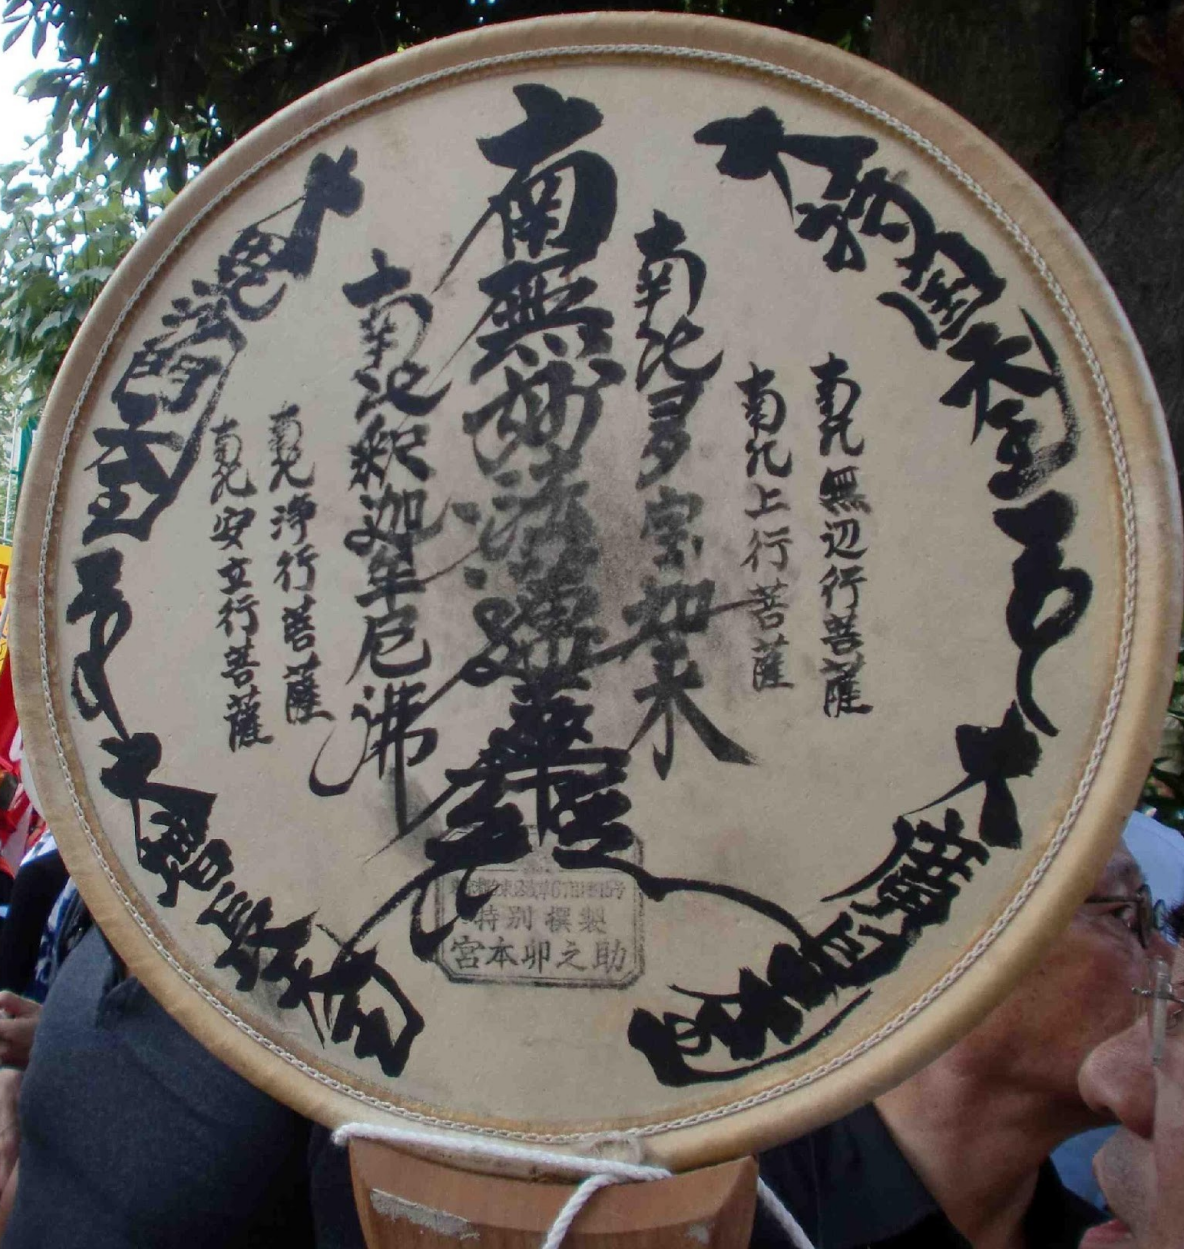 大持国天王
南無無辺行菩薩
南無上行菩薩
南無多宝如来
南無妙法蓮華経
南無釈迦牟尼佛
南無浄行菩薩
南無安立行菩薩
大毘沙門天王
大広目天王
大増長天王
特別撰製
宮本卯之助